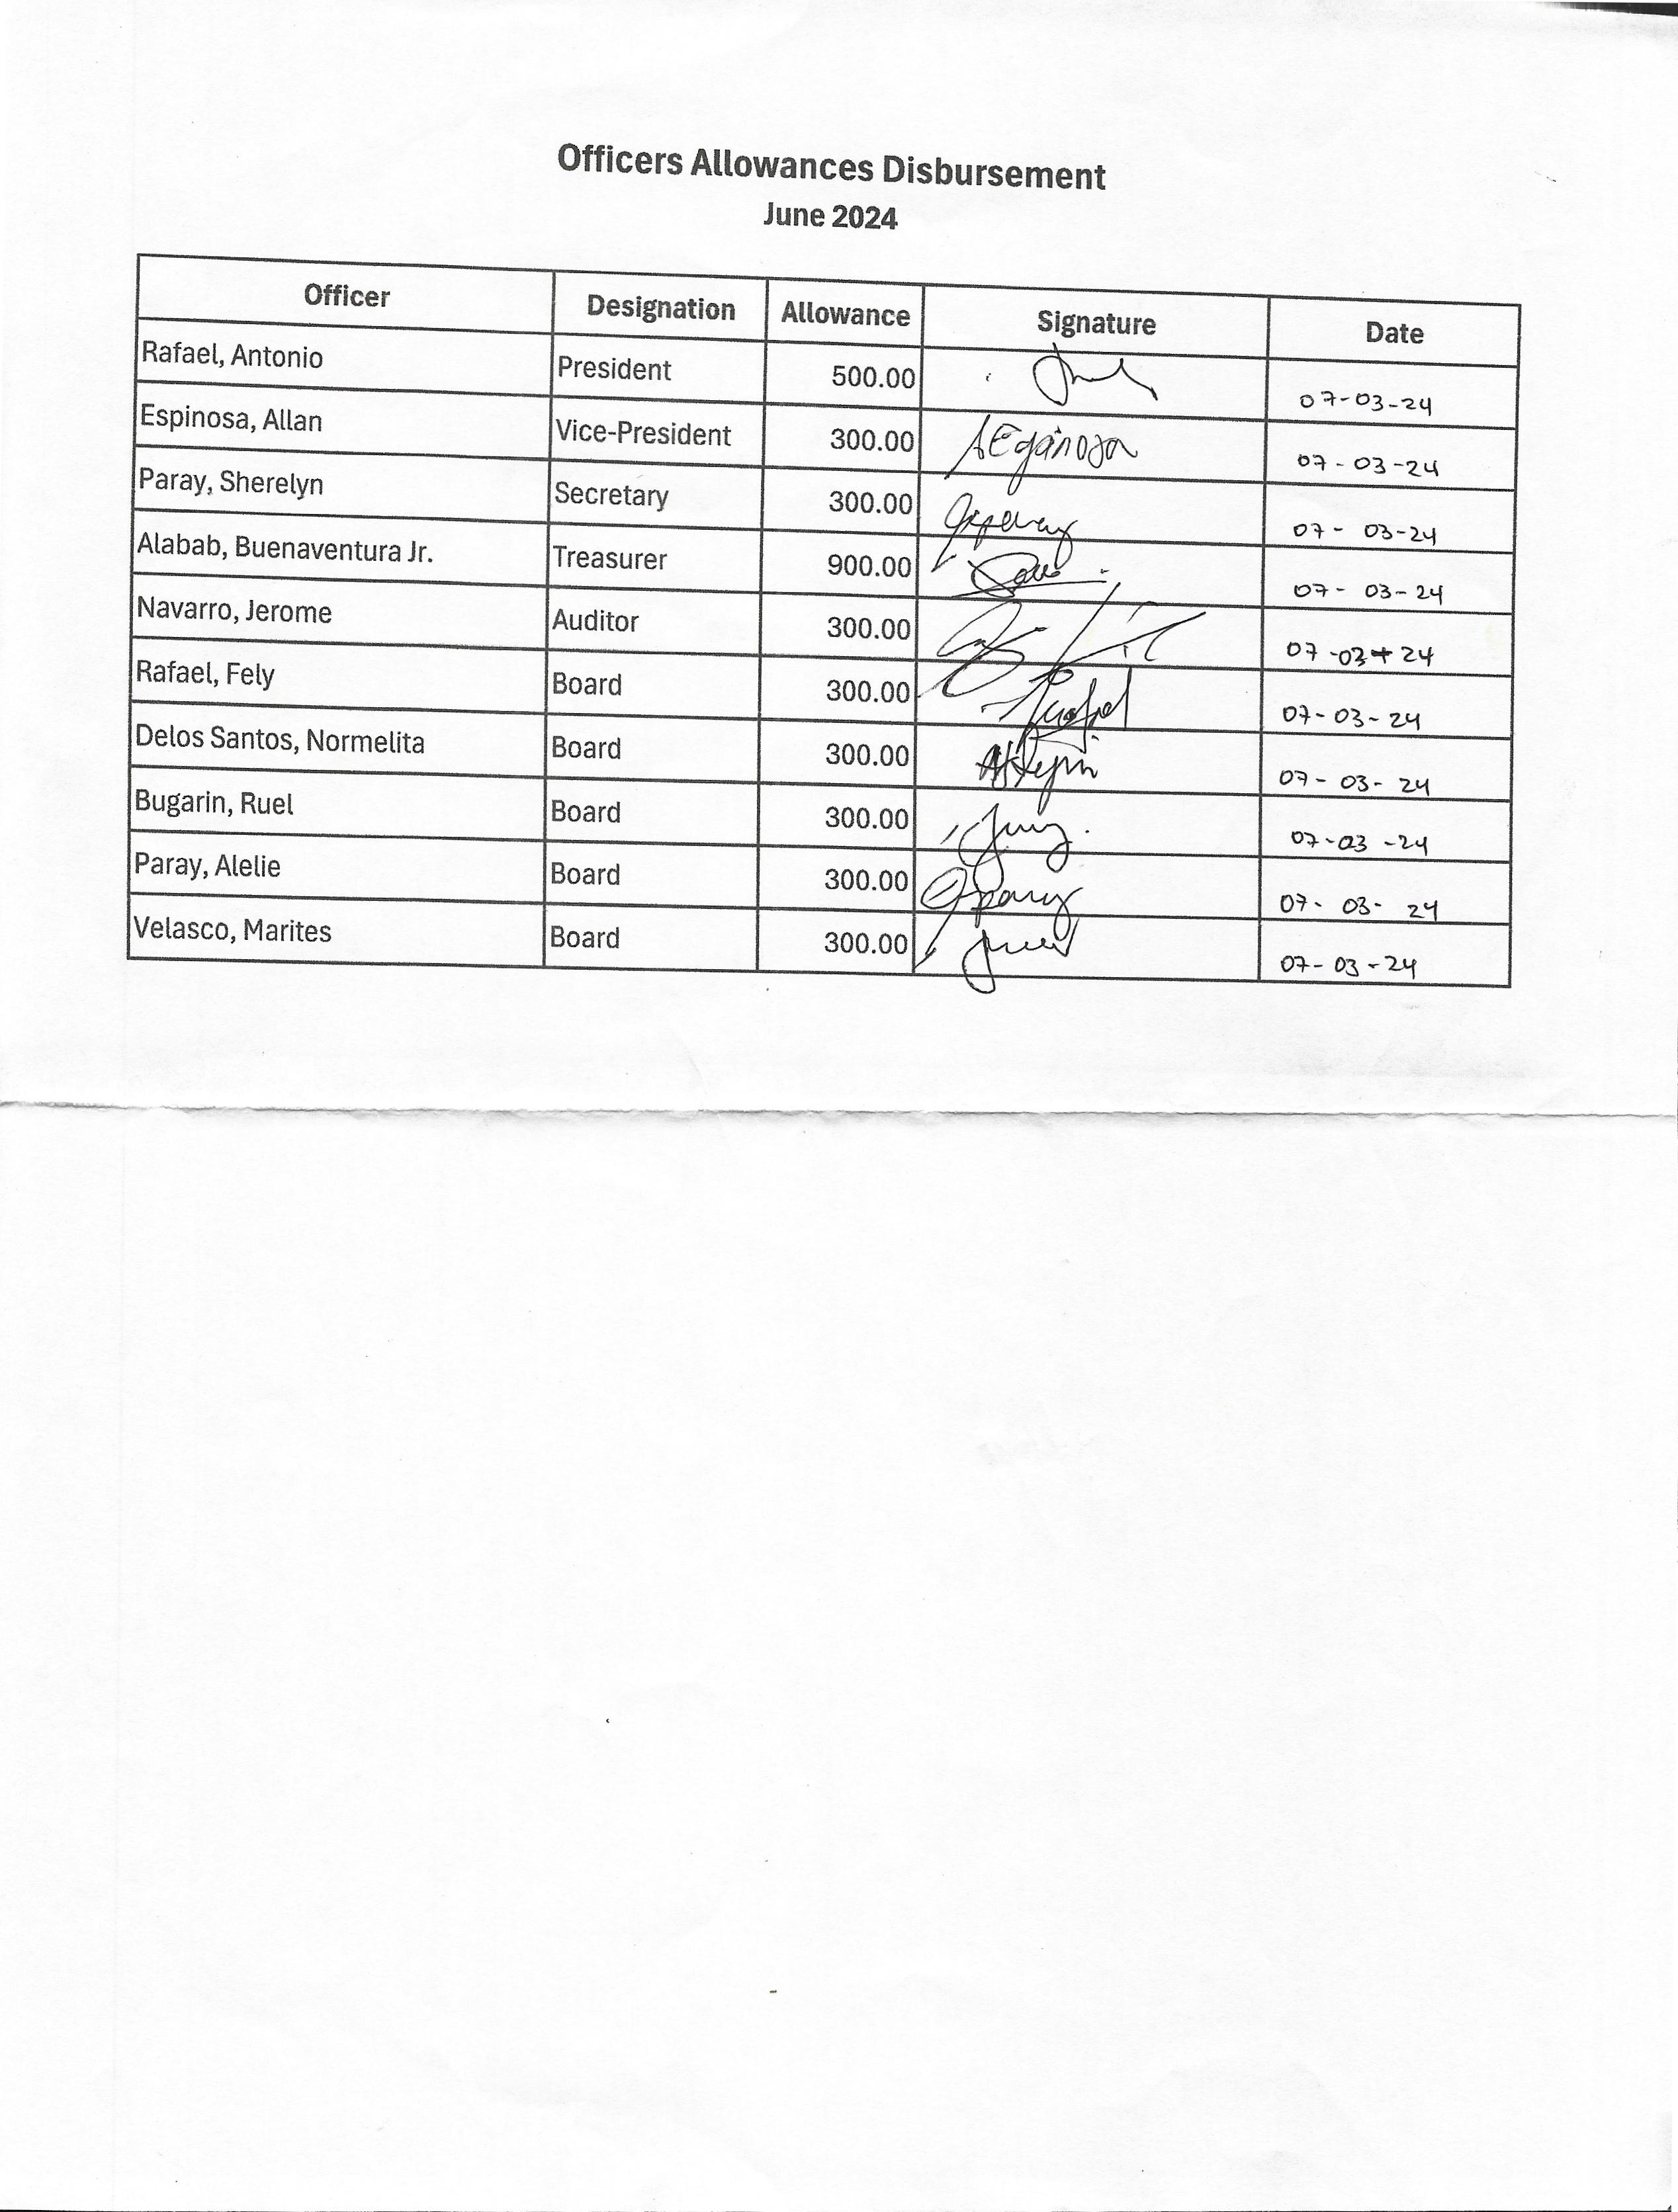 Officers Allowances Disbursement
June 2024
Officer Designation Allowance Signature Date
Rafael, Antonio President 500.00 07-03-24
Espinosa, Allan Vice-President 300.00 AEspinosa 07-03-24
Paray, Sherelyn Secretary 300.00 07-03-24
Alabab, Buenaventura Jr. Treasurer 900.00 07-03-24
Navarro, Jerome Auditor 300.00 07-03-24
Rafael, Fely Board 300.00 07-03-24
Delos Santos, Normelita Board 300.00 07-03-24
Bugarin, Ruel Board 300.00 07-03-24
Paray, Alelie Board 300.00 07-03-24
Velasco, Marites Board 300.00 07-03-24